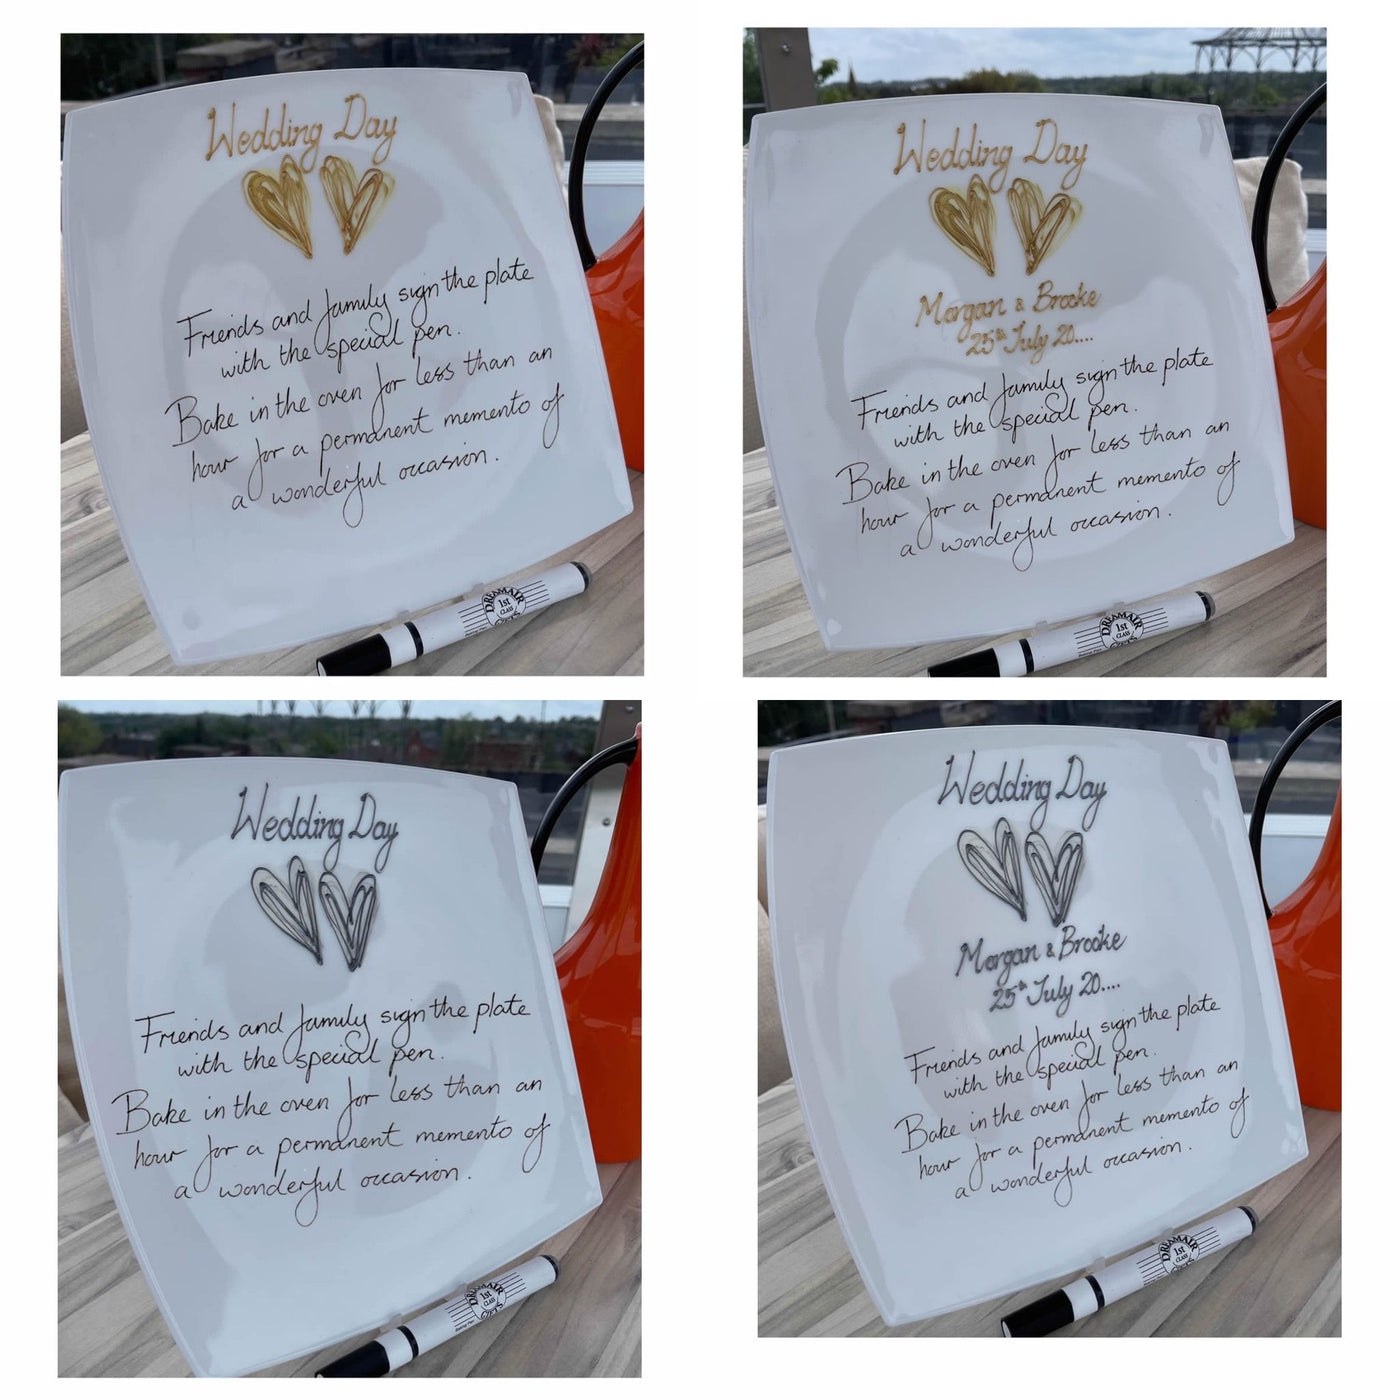 Wedding Day
Friends and family sign the plate
with the special pen.
Bake in the oven for less than an
hour for a permanent memento of
a wonderful occasion.
DREAMAIR
1st
CLASS
GIFTS
Wedding Day
Morgan & Brooke
25th July 20....
Friends and family sign the plate
with the special pen.
Bake in the oven for less than an
hour for a permanent memento of
a wonderful occasion.
DREAMAIR
1st
CLASS
GIFTS
Wedding Day
Friends and family sign the plate
with the special pen.
Bake in the oven for less than an
hour for a permanent memento of
a wonderful occasion.
DREAMAIR
1st
CLASS
GIFTS
Wedding Day
Morgan & Brooke
25th July 20....
Friends and family sign the plate
with the special pen.
Bake in the oven for less than an
hour for a permanent memento of
a wonderful occasion.
DREAMAIR
1st
CLASS
GIFTS